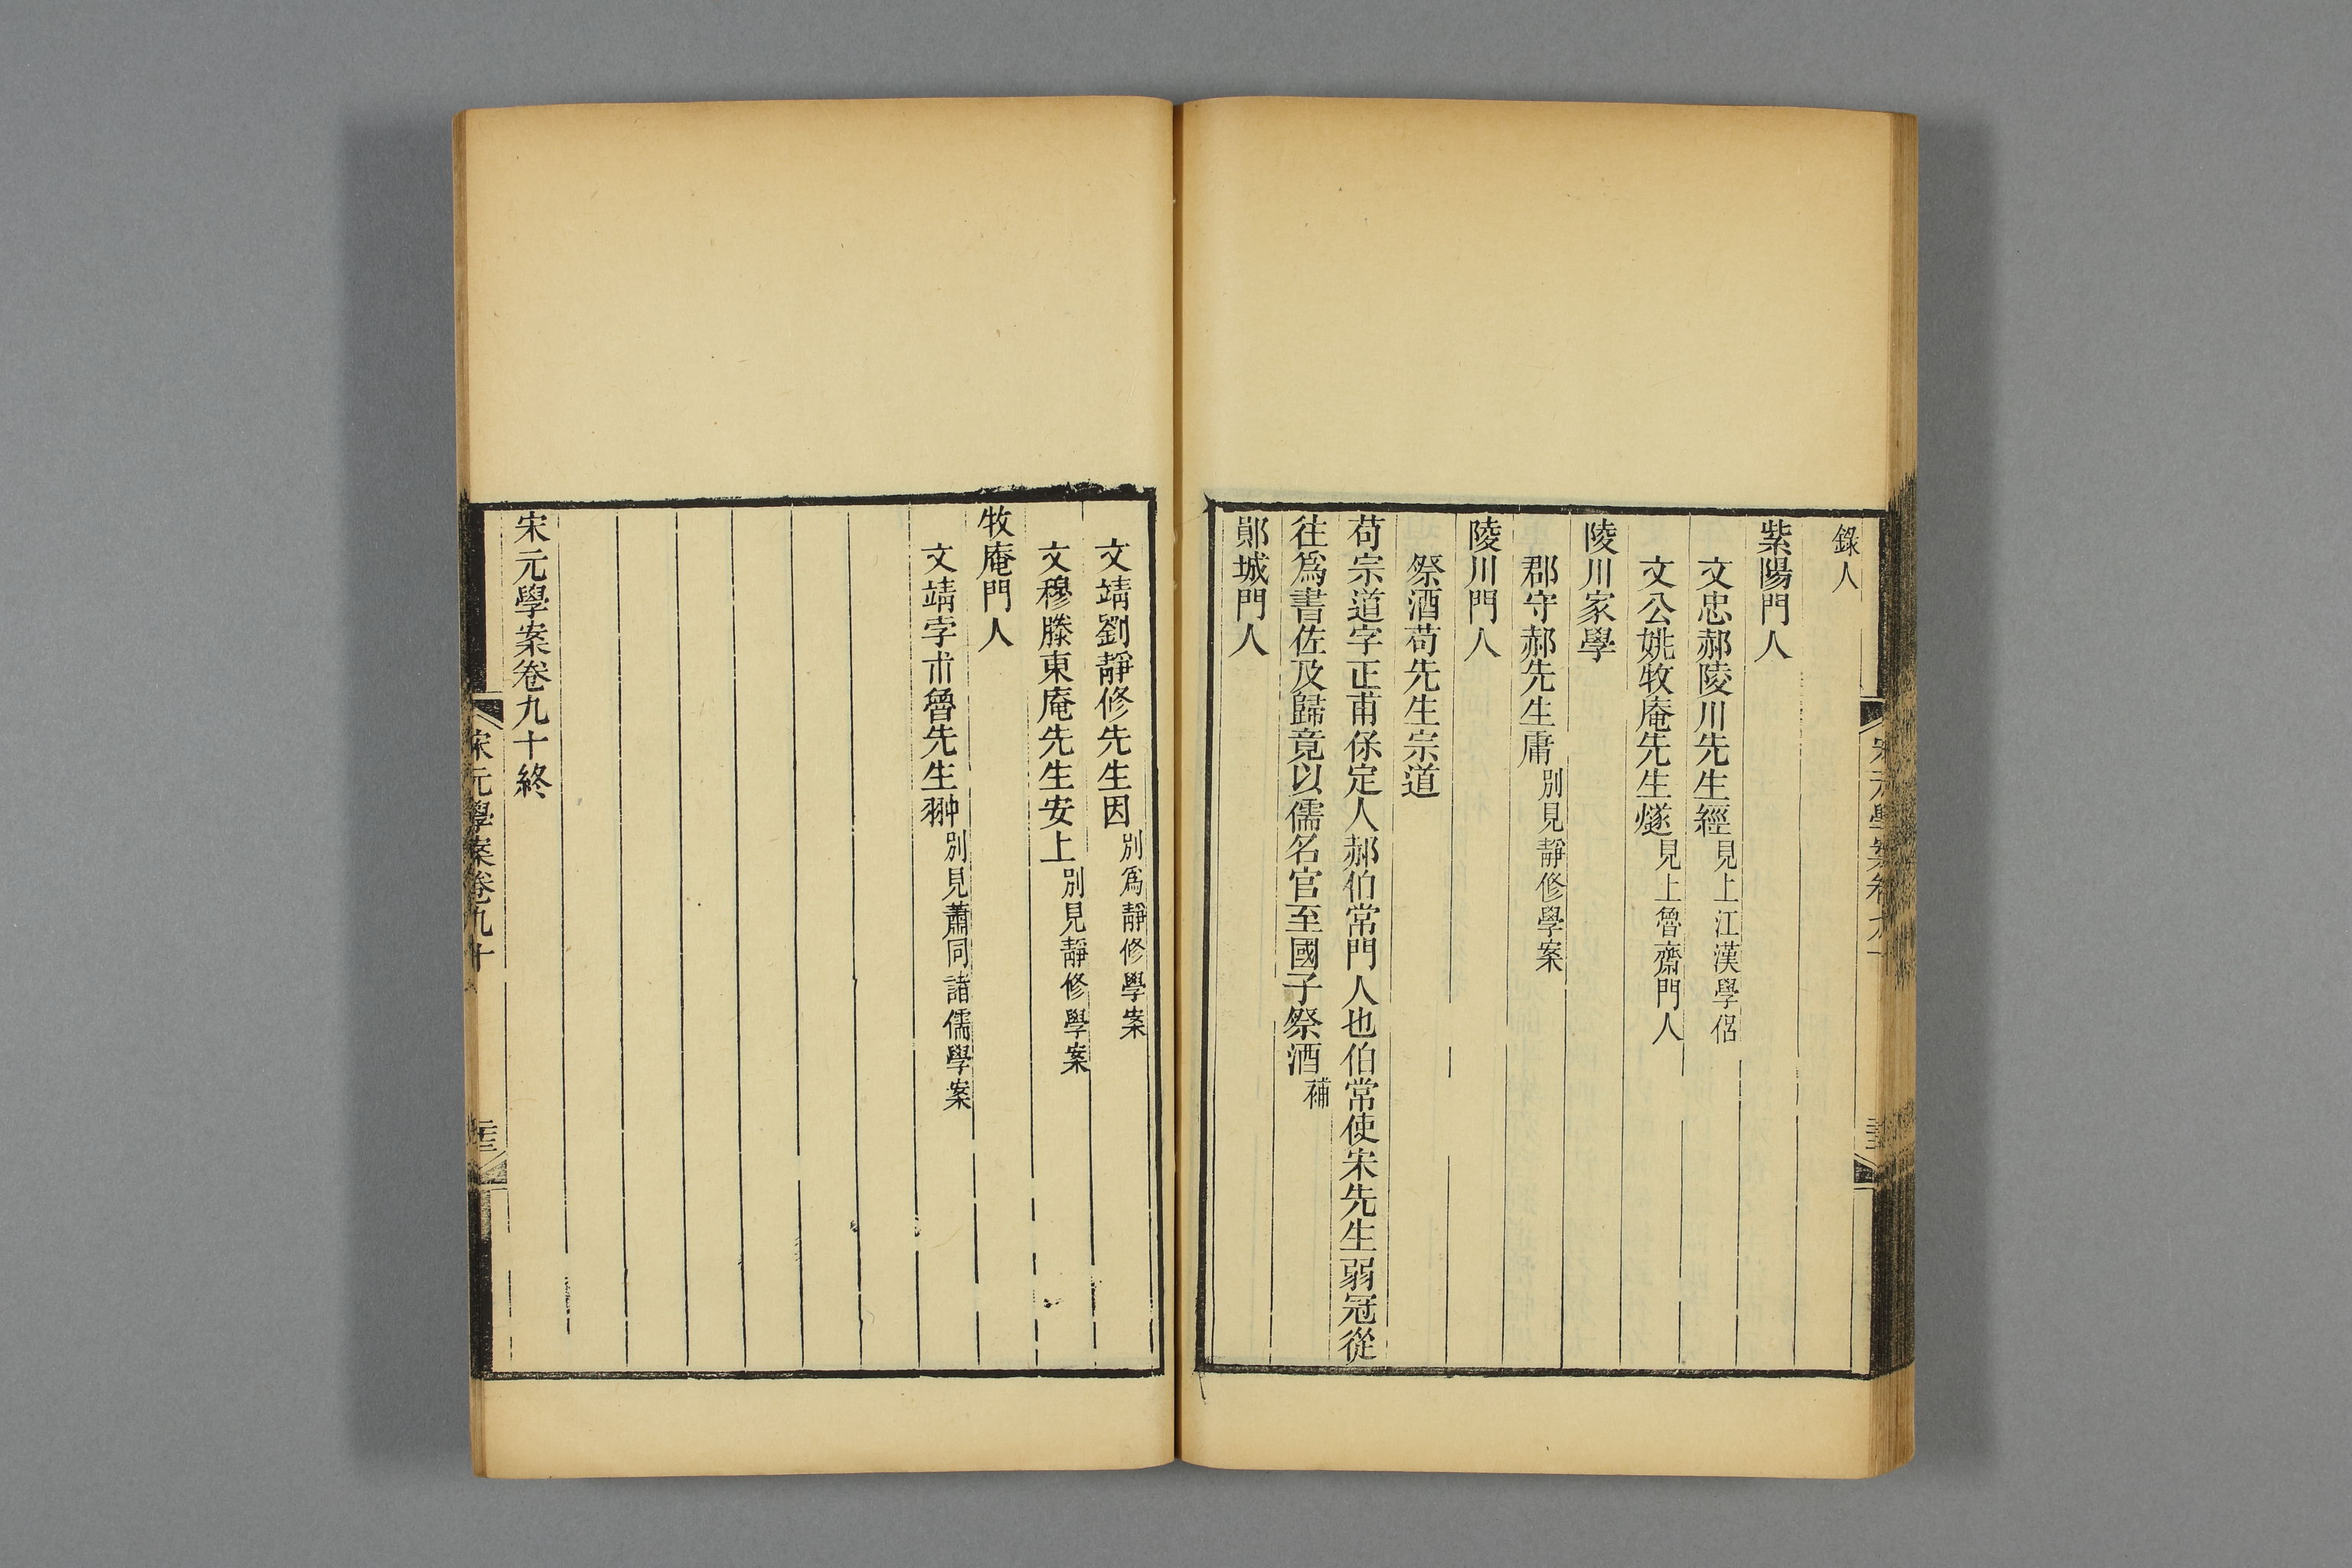 錄人
紫陽門人
文忠郝陵川先生經見上江漢學侶
文公姚牧庵先生燧見上魯齋門人
陵川家學
郡守郝先生庸別見靜修學案
陵川門人
祭酒苟先生宗道
苟宗道字正甫保定人郝伯常門人也伯常使宋先生弱冠從
往爲書佐及歸竟以儒名官至國子祭酒補
鄖城門人
文靖劉靜修先生因別爲靜修學案
文穆滕東庵先生安上別見靜修學案
牧庵門人
文靖孛朮魯先生翀別見蕭同諸儒學案
宋元學案卷九十終
宋元學案卷九十